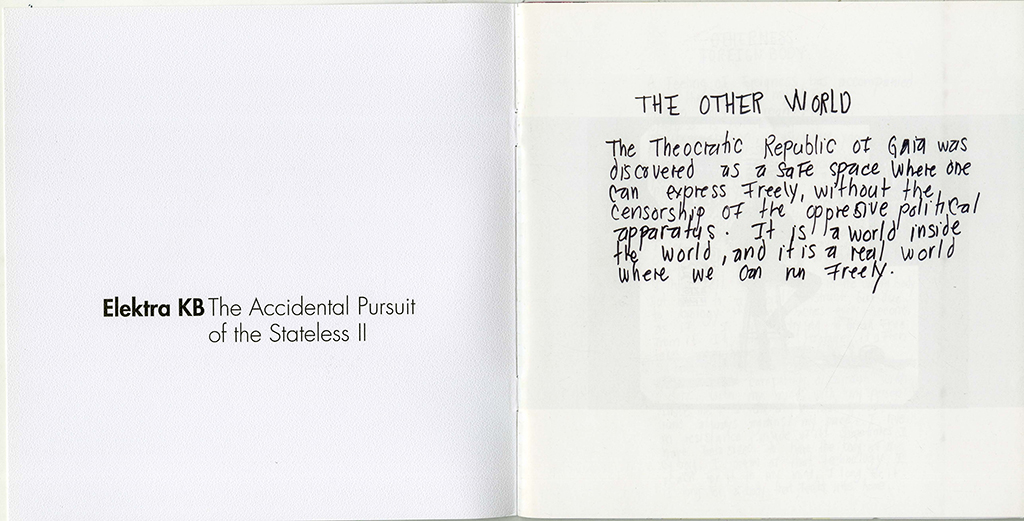 Elektra KB The Accidental Pursuit
of the Stateless II
THE OTHER WORLD
The Theocratic Republic of Gaia was
discovered as a safe space where one
can express freely, without the
censorship of the oppresive political
apparatus. It is a world inside
the world, and it is a real world
where we can run freely.